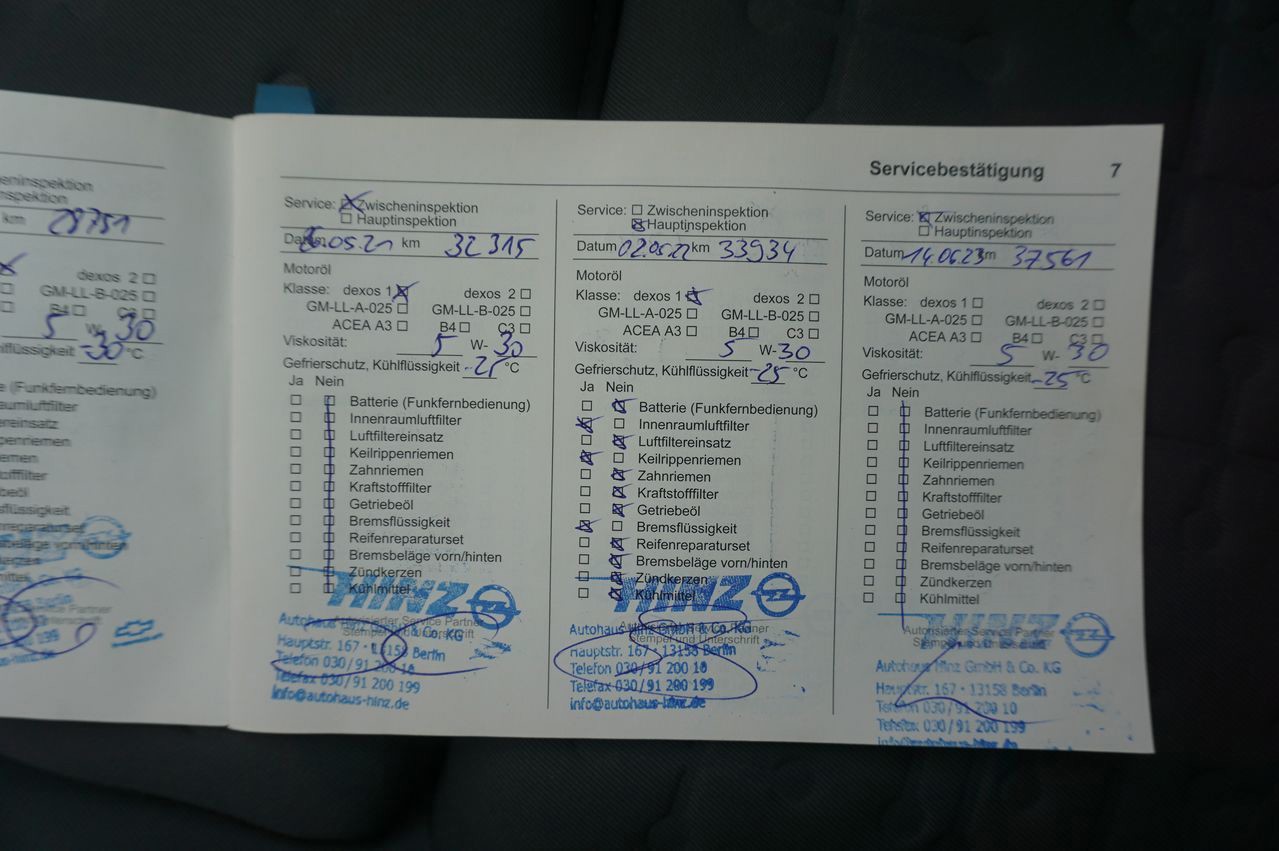 eninspektion
nspektion
km 28751
dexos 2
GM-LL-B-025
B4 C3
5 W- 30
flüssigkeit -30 °C
e (Funkfernbedienung)
aumluftfilter
ereinsatz
penriemen
emen
offfilter
eöl
sflüssigkeit
reparaturset
beläge vorn/hinten
kerzen
mittel
Service Partner
199
Servicebestätigung 7
Service: Zwischeninspektion
Hauptinspektion
Datum .05.21 km 32 315
Motoröl
Klasse: dexos 1 dexos 2
GM-LL-A-025 GM-LL-B-025
ACEA A3 B4 C3
Viskosität: 5 W- 30
Gefrierschutz, Kühlflüssigkeit -25 °C
Ja Nein
Batterie (Funkfernbedienung)
Innenraumluftfilter
Luftfiltereinsatz
Keilrippenriemen
Zahnriemen
Kraftstofffilter
Getriebeöl
Bremsflüssigkeit
Reifenreparaturset
Bremsbeläge vorn/hinten
Zündkerzen
Kühlmittel
HINZ
Autorisierter Service Partner
Stempel und Unterschrift
Autohaus & Co. KG
Hauptstr. 167 · 13158 Berlin
Telefon 030/91 200 10
Telefax 030/91 200 199
info@autohaus-hinz.de
Service: Zwischeninspektion
Hauptinspektion
Datum 02.05.22 km 33934
Motoröl
Klasse: dexos 1 dexos 2
GM-LL-A-025 GM-LL-B-025
ACEA A3 B4 C3
Viskosität: 5 W- 30
Gefrierschutz, Kühlflüssigkeit -25 °C
Ja Nein
Batterie (Funkfernbedienung)
Innenraumluftfilter
Luftfiltereinsatz
Keilrippenriemen
Zahnriemen
Kraftstofffilter
Getriebeöl
Bremsflüssigkeit
Reifenreparaturset
Bremsbeläge vorn/hinten
Zündkerzen
Kühlmittel
HINZ
Autorisierter Service Partner
Stempel und Unterschrift
Autohaus Hinz GmbH & Co. KG
Hauptstr. 167 · 13158 Berlin
Telefon 030/91 200 10
Telefax 030/91 200 199
info@autohaus-hinz.de
Service: Zwischeninspektion
Hauptinspektion
Datum 14.06.23 km 37561
Motoröl
Klasse: dexos 1 dexos 2
GM-LL-A-025 GM-LL-B-025
ACEA A3 B4 C3
Viskosität: 5 W- 30
Gefrierschutz, Kühlflüssigkeit -25 °C
Ja Nein
Batterie (Funkfernbedienung)
Innenraumluftfilter
Luftfiltereinsatz
Keilrippenriemen
Zahnriemen
Kraftstofffilter
Getriebeöl
Bremsflüssigkeit
Reifenreparaturset
Bremsbeläge vorn/hinten
Zündkerzen
Kühlmittel
HINZ
Autorisierter Service Partner
Stempel und Unterschrift
Autohaus Hinz GmbH & Co. KG
Hauptstr. 167 · 13158 Berlin
Telefon 030/91 200 10
Telefax 030/91 200 199
info@autohaus-hinz.de